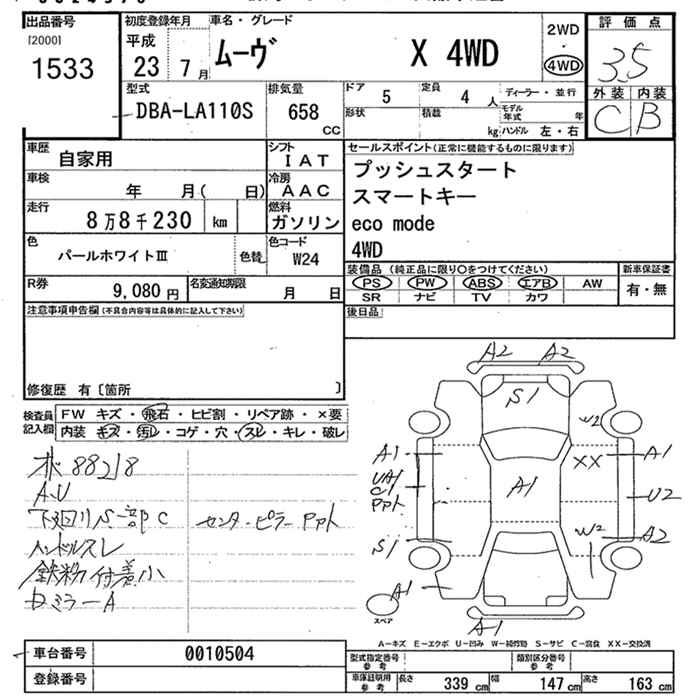 出品番号
[2000]
1533
初度登録年月
平成
23 7月
車名・グレード
ムーヴ X 4WD
2WD
・
4WD
評価点
3.5
外装 内装
C B
型式
DBA-LA110S
排気量
658
CC
ドア 5
定員 4人
形状
積載 kg
ディーラー・並行
モデル年式 年
ハンドル 左・右
車歴 自家用
シフト IAT
車検 年 月( 日)
冷房 AAC
走行 8万8千230 km
燃料 ガソリン
色 パールホワイトⅢ
色替
色コード W24
R券 9,080円
名変通知期限 月 日
セールスポイント(正常に機能するものに限ります)
プッシュスタート
スマートキー
eco mode
4WD
装備品 (純正品に限り○をつけてください)
PS PW ABS エアB AW
SR ナビ TV カワ
新車保証書
有・無
後日品
注意事項申告欄(不具合内容等は具体的に記入して下さい)
修復歴 有〔箇所 〕
検査員記入欄
FW キズ・飛石・ヒビ割・リペア跡・×要
内装 キズ・汚れ・コゲ・穴・スレ・キレ・破レ
88218
A.U
C
センターピラー Ppt
ハンドルスレ
鉄粉付着小
ミラーA
A2 A2
S1
W2
A1
UA1
C1
Ppt
A1
XX
A1
U2
S1
W2
A2
A1
A1
スペア
A-キズ E-エクボ U-凹み W-補修跡 S-サビ C-腐食 XX-交換済
車台番号 0010504
登録番号
型式指定番号 参考
類別区分番号 参考
車庫証明用 参考
長さ 339 cm
幅 147 cm
高さ 163 cm